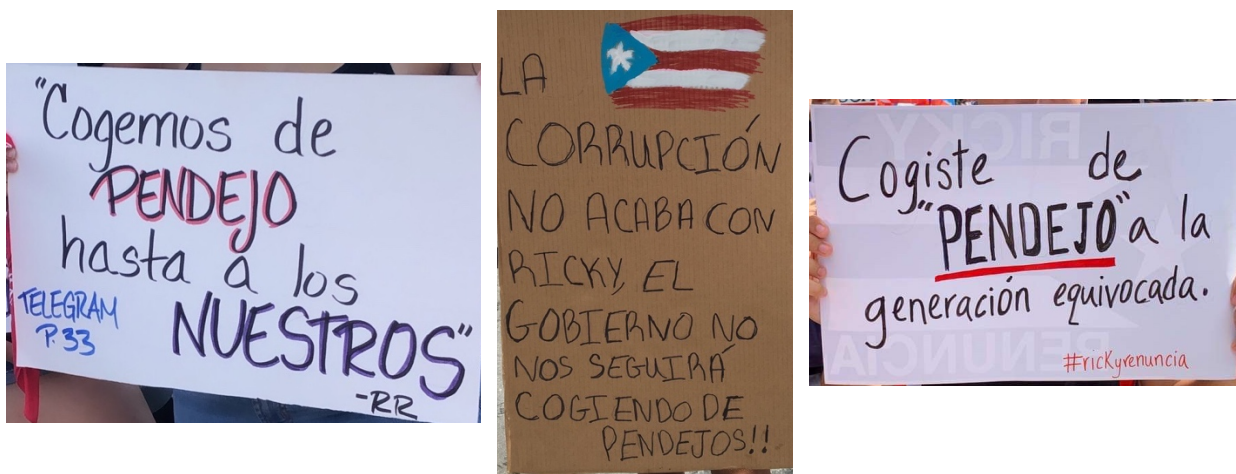 "Cogemos de
PENDEJO
hasta a los
NUESTROS"
TELEGRAM
P.33
-RR
LA
CORRUPCIÓN
NO ACABA CON
RICKY, EL
GOBIERNO NO
NOS SEGUIRÁ
COGIENDO DE
PENDEJOS!!
Cogiste de
"PENDEJO" a la
generación equivocada.
#rickyrenuncia
RICKY
RENUNCIA